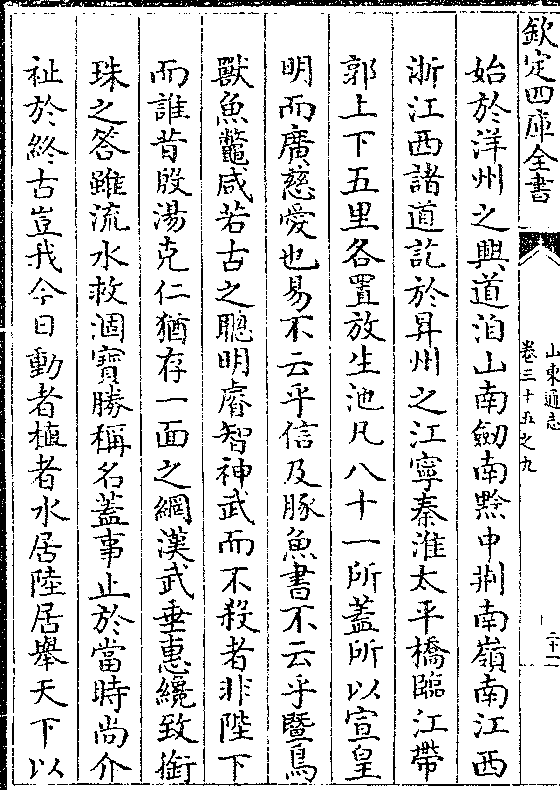 欽定四庫全書
山東通志
卷三十五之九
二十一
始於洋州之興道洎山南劒南黔中荆南嶺南江西
浙江西諸道訖於昇州之江寧秦淮太平橋臨江帶
郭上下五里各置放生池凡八十一所蓋所以宣皇
明而廣慈愛也易不云乎信及豚魚書不云乎暨鳥
獸魚鼈咸若古之聰明睿智神武而不殺者非陛下
而誰昔殷湯克仁猶存一面之網漢武垂惠纔致銜
珠之答雖流水救涸寶勝稱名蓋事止於當時尚介
祉於終古豈我今日動者植者水居陸居舉天下以